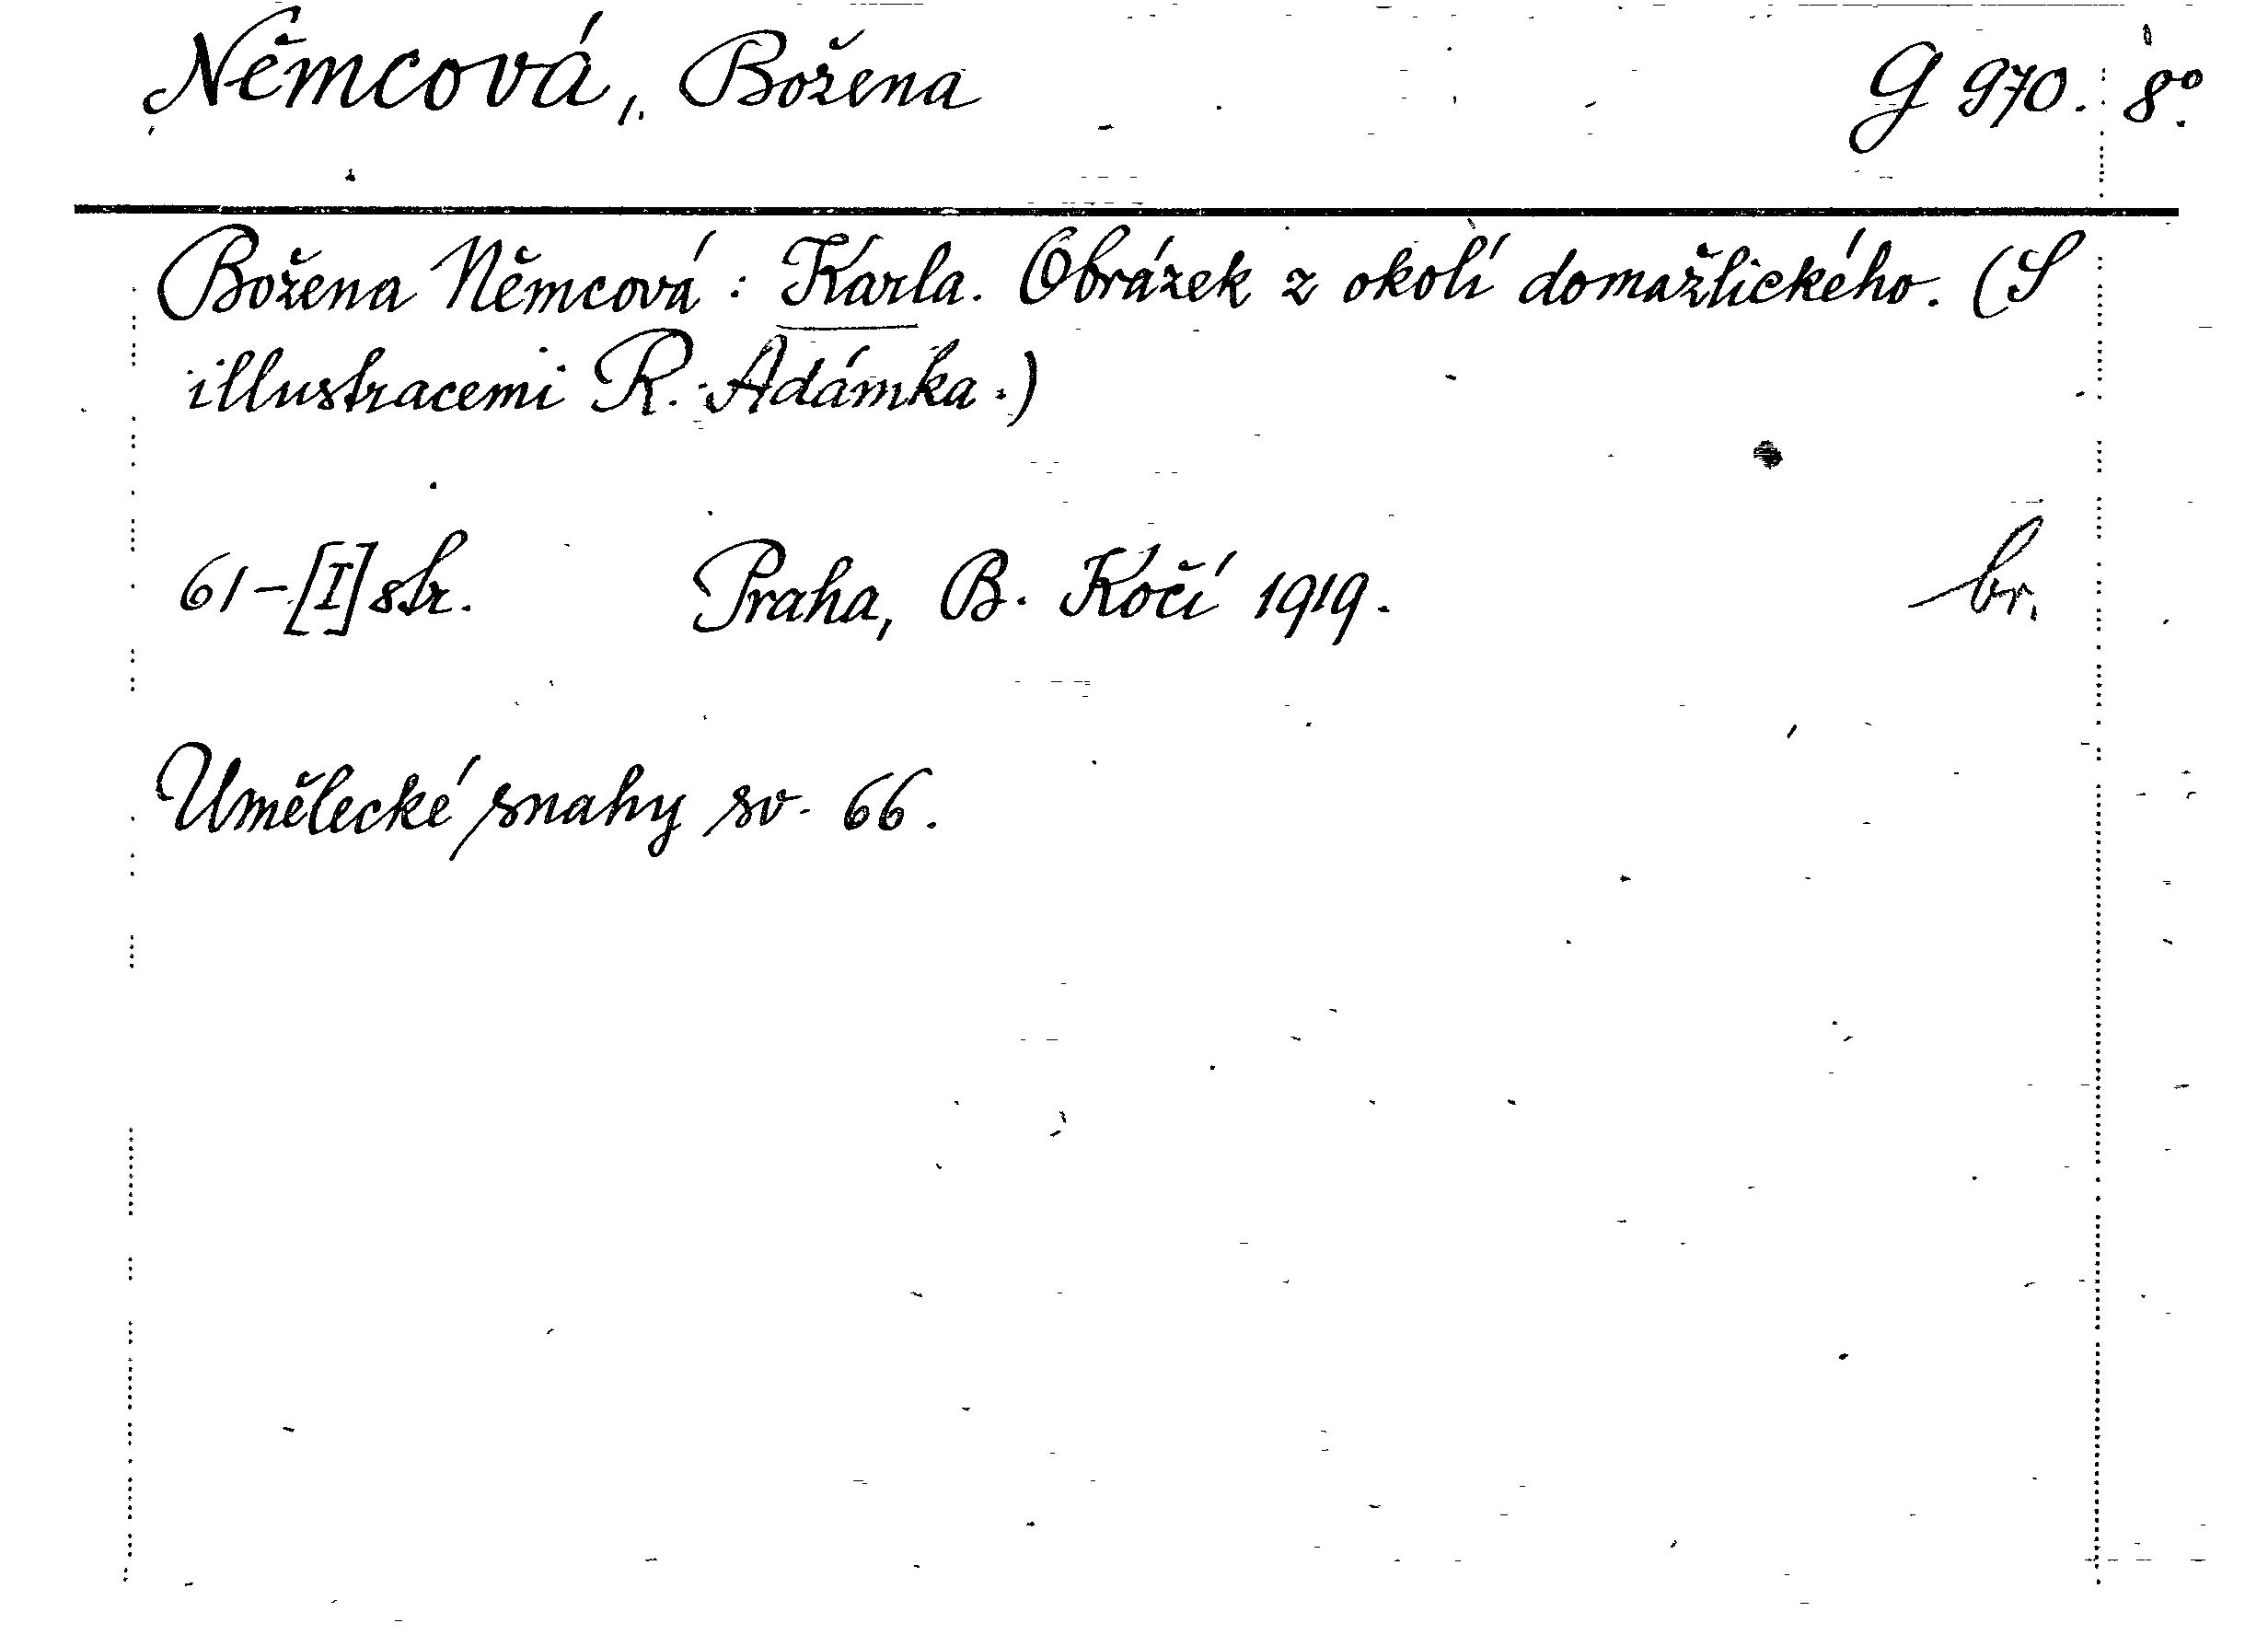 Němcová, Božena G 970. 8°.
Božena Němcová: Karla. Obrázek z okolí domažlického. (S
illustracemi R. Adámka.)
61-[I] str. Praha, B. Kočí 1919. br.
Umělecké snahy sv. 66.